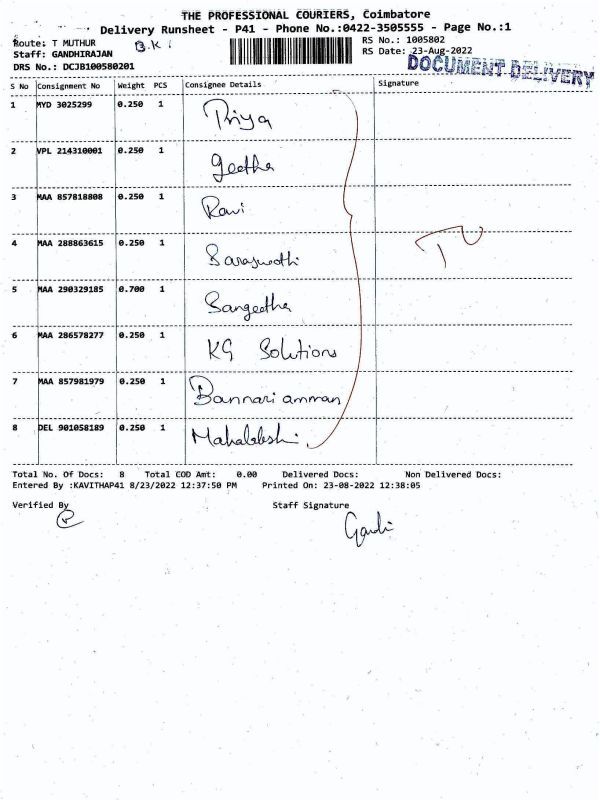 THE PROFESSIONAL COURIERS, Coimbatore
Delivery Runsheet - P41 - Phone No.:0422-3505555 - Page No.:1
Route: T MUTHUR B.K 1 RS No.: 1005802
Staff: GANDHIRAJAN RS Date: 23-Aug-2022
DRS No.: DCJB100580201 DOCUMENT DELIVERY
S No Consignment No Weight PCS Consignee Details Signature
1 MYD 3025299 0.250 1 Priya
2 VPL 214310001 0.250 1 Geetha
3 MAA 857818808 0.250 1 Ravi
4 MAA 288863615 0.250 1 Saraswathi
5 MAA 290329185 0.700 1 Sangeetha
6 MAA 286578277 0.250 1 KG Solutions
7 MAA 857981979 0.250 1 Bannari amman
8 DEL 901058189 0.250 1
Total No. Of Docs: 8 Total COD Amt: 0.00 Delivered Docs: Non Delivered Docs:
Entered By :KAVITHAP41 8/23/2022 12:37:50 PM Printed On: 23-08-2022 12:38:05
Verified By Staff Signature
Gandi